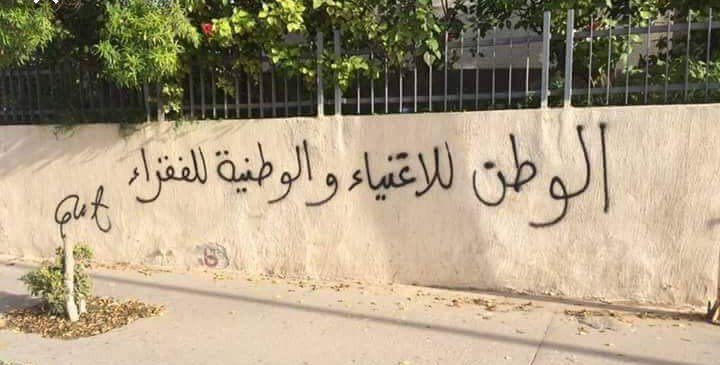 الوطن للاغنياء و الوطنية للفقراء